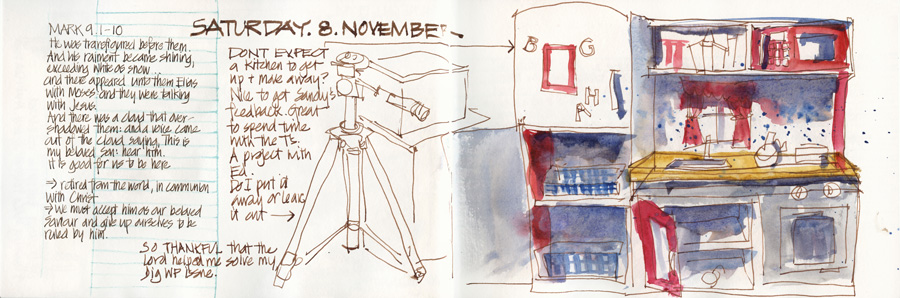 SATURDAY. 8. NOVEMBER.
MARK 9. 1-10
He was transfigured before them.
And his raiment became shining,
exceeding white as snow...
and there appeared unto them Elias
with Moses: and they were talking
with Jesus.
And there was a cloud that over-
shadowed them: and a voice came
out of the cloud saying, This is
my beloved son: hear him.
it is good for us to be here
→ retired from the world, in communion
with Christ
→ We must accept him as our beloved
Saviour and give up ourselves to be
ruled by him.
DONT EXPECT
a kitchen to get
up + make away?
Nice to get Sandy's
feedback. Great
to spend time
with the T's.
A project with
Ed.
Do I put it
away or leave
it out →
SO THANKFUL that the
Lord helped me solve my
big WP issue.
B G
A H I